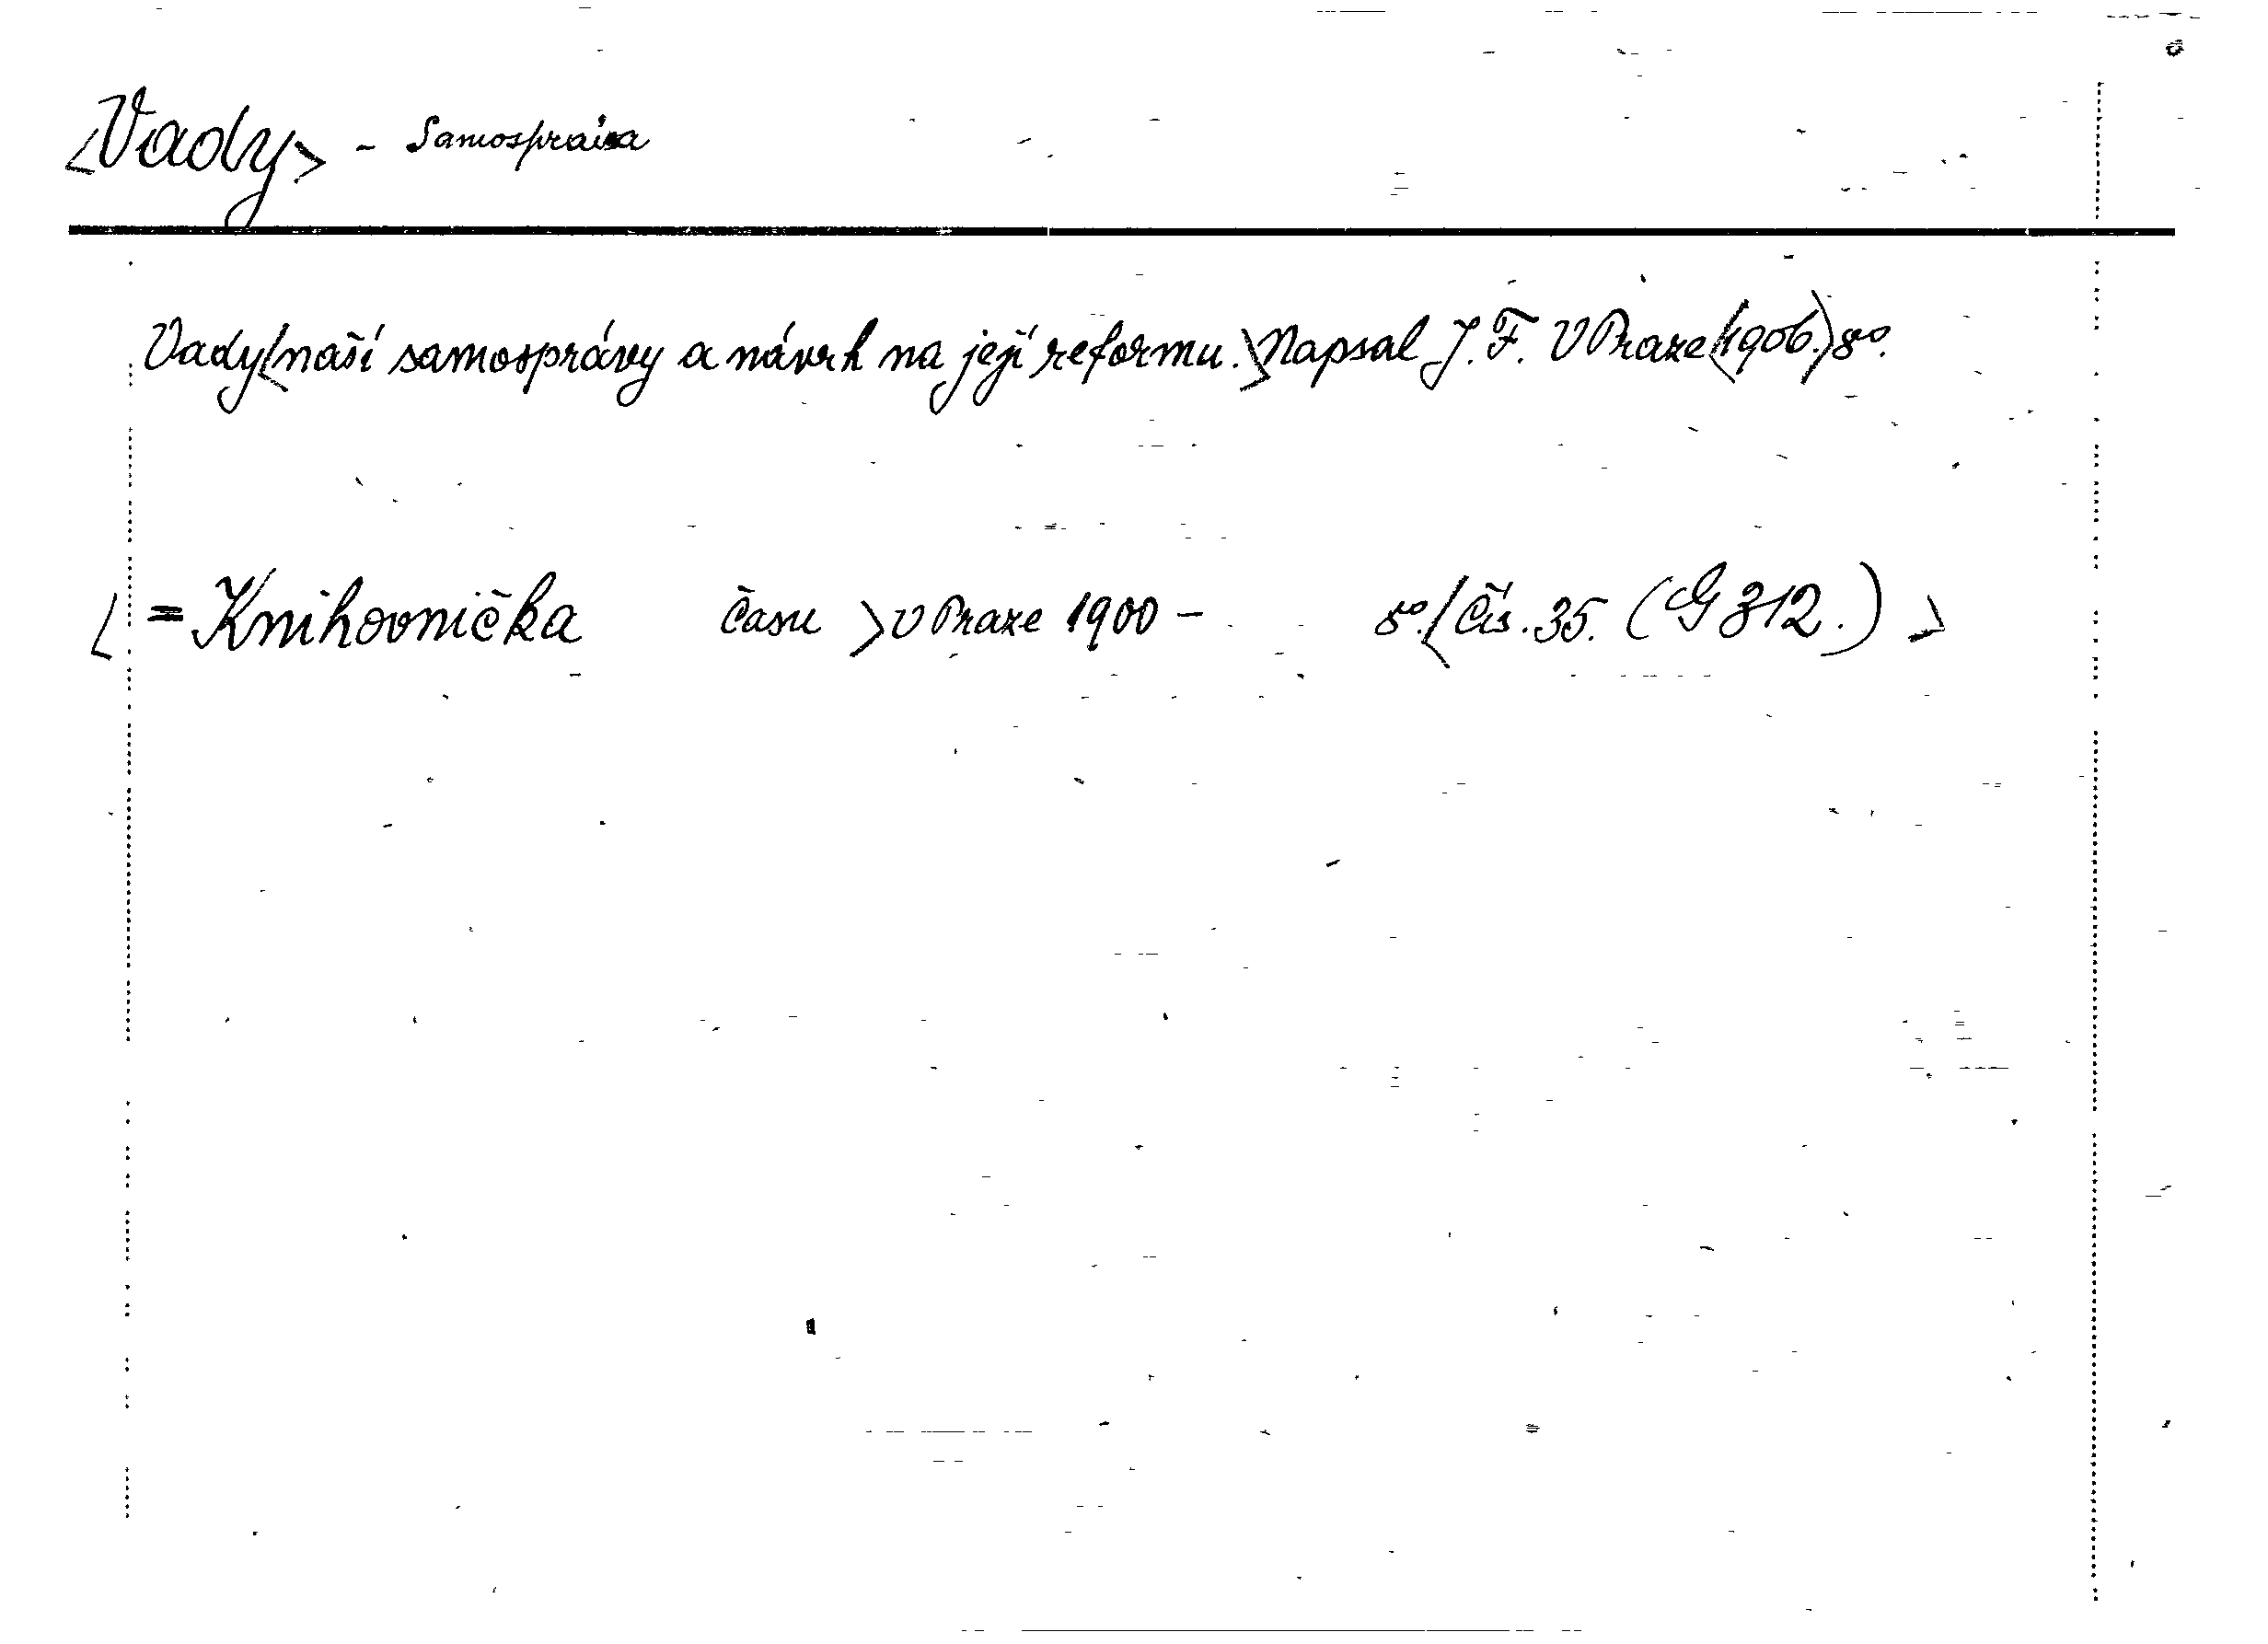 <Vady> - Samospráva
Vady<naší samosprávy a návrh na její reformu.>Napsal J. F. V Praze<1906.>8º.
<=Knihovnička Času >V Praze 1900 - 8º.<Čís. 35. (G 312.)>